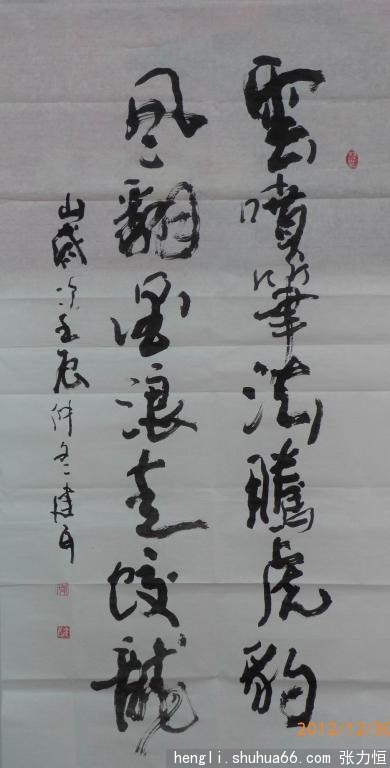 雲噴筆花騰虎豹
風翻墨浪走蛟龍
歲次壬辰仲冬建
2012/12/
hengli.shuhua66.com 张力恒